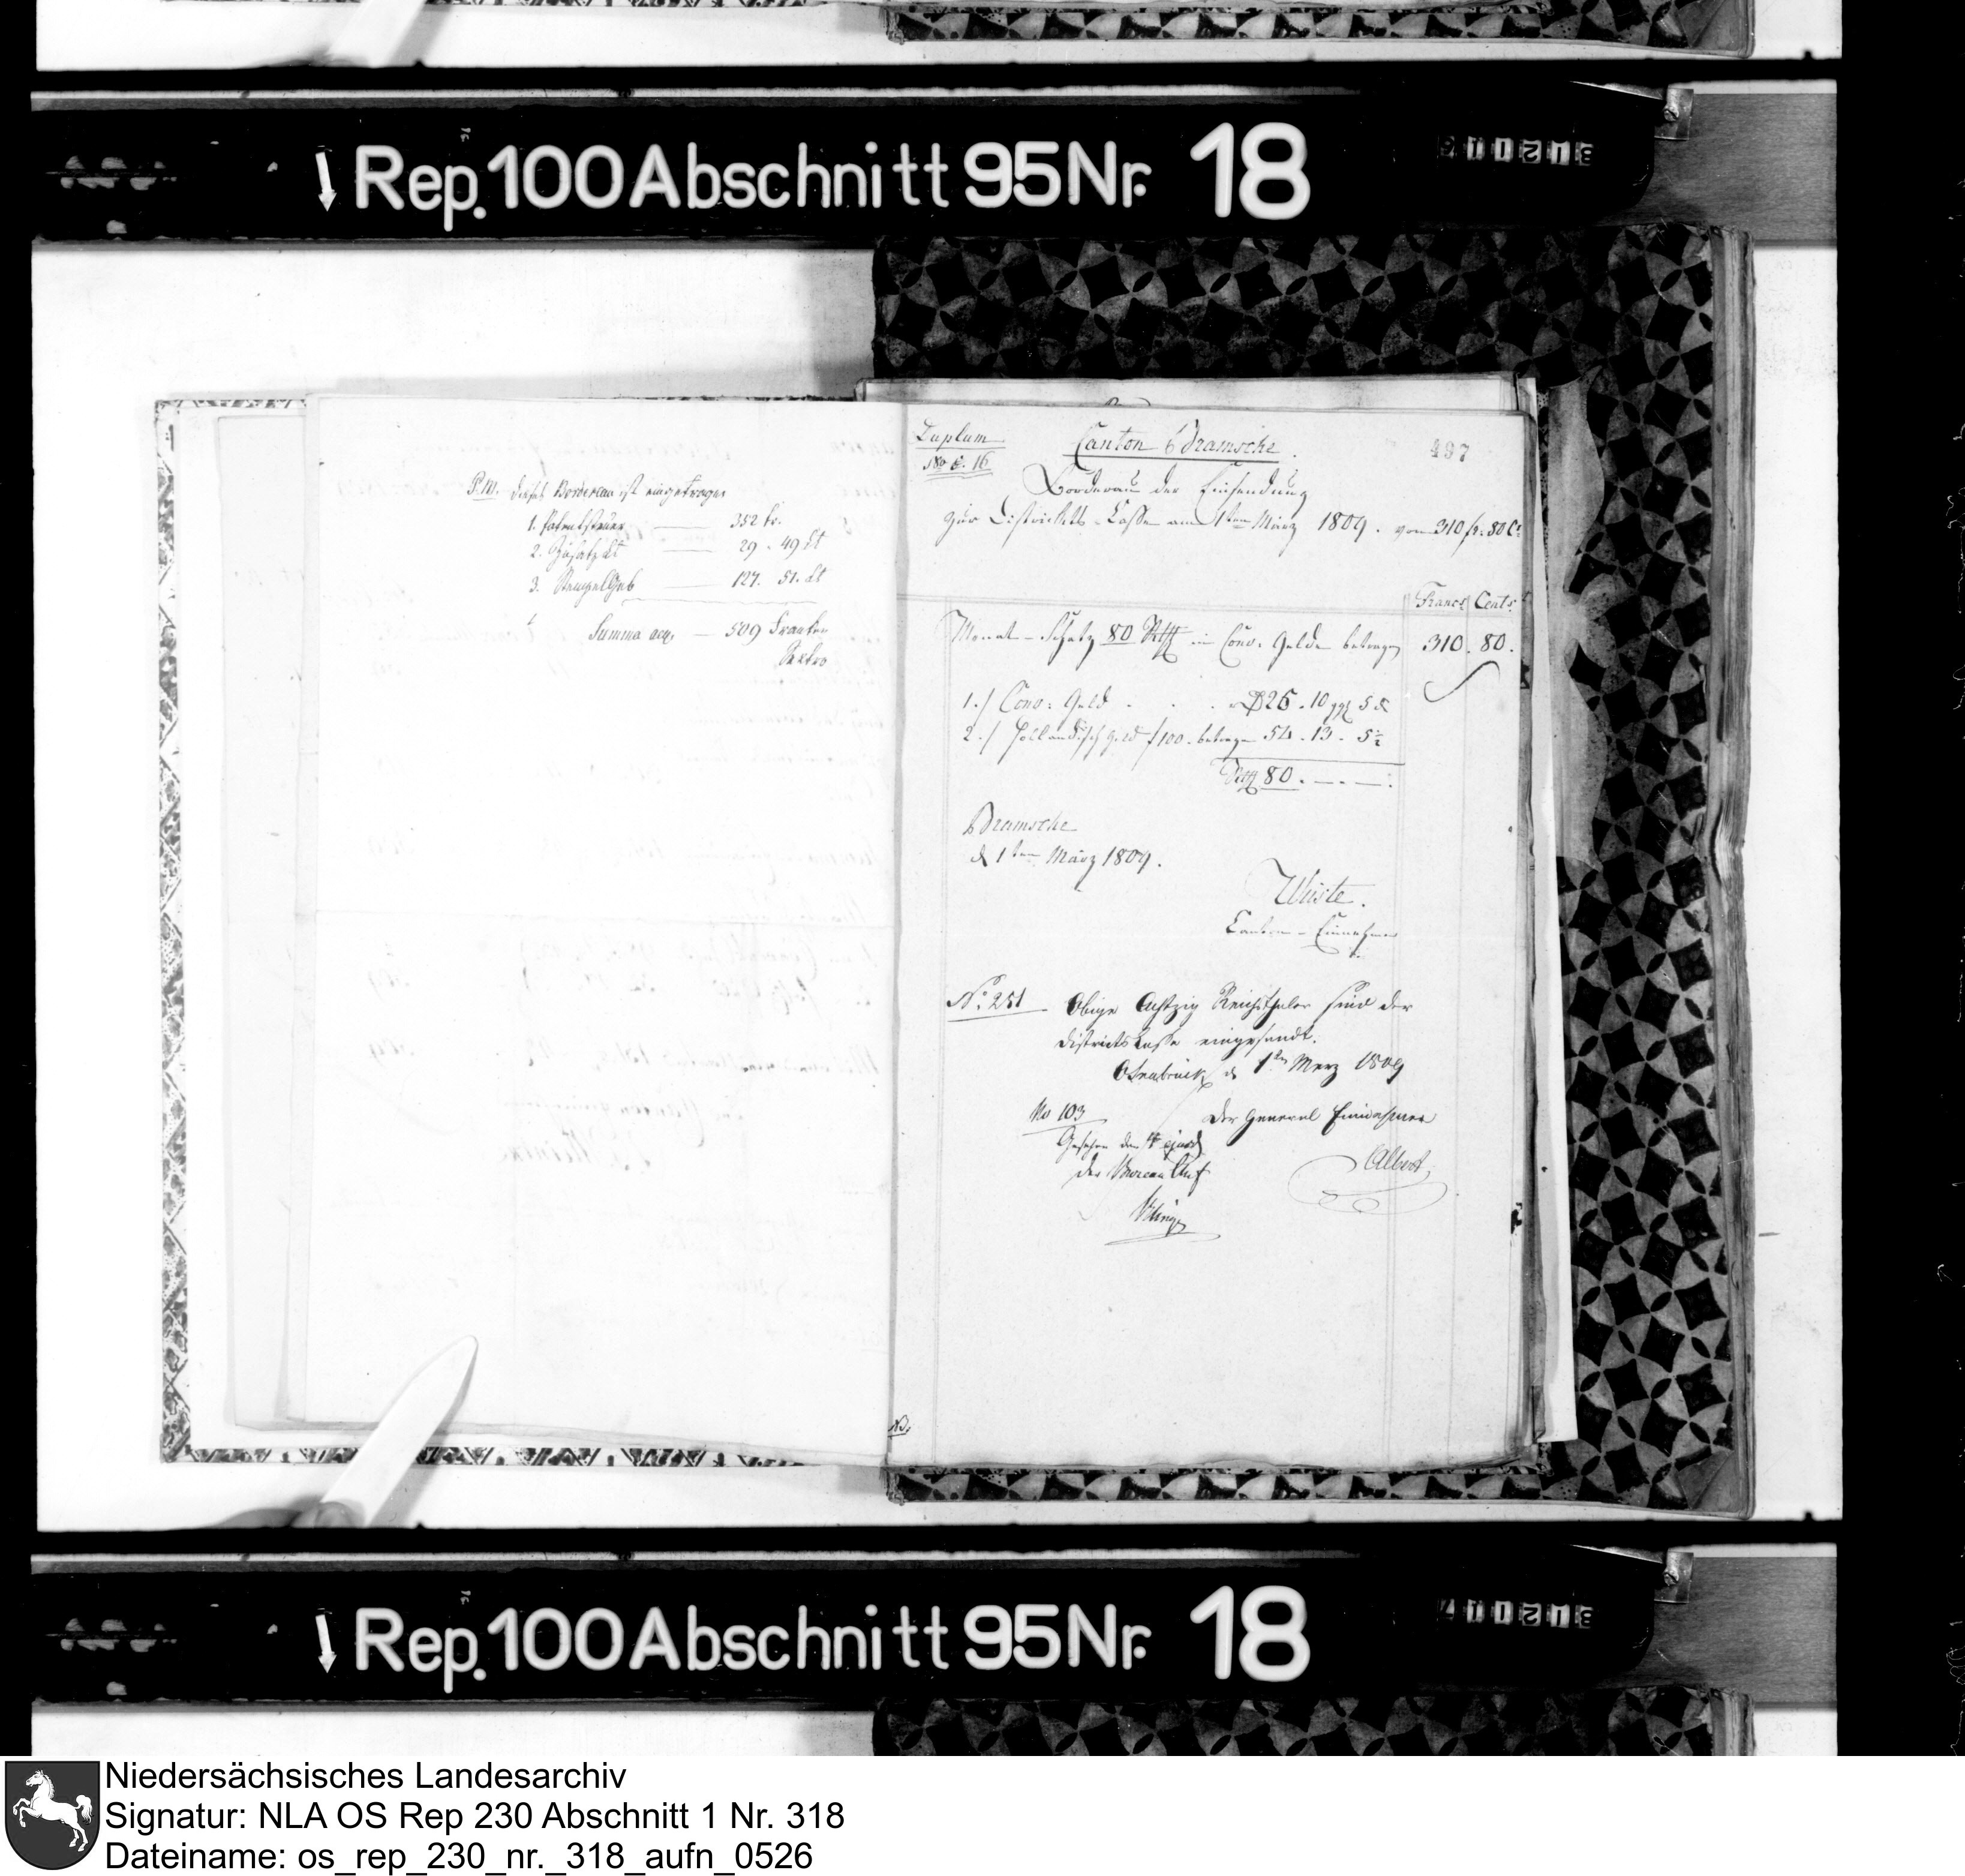 Rep. 100 Abschnitt 95 Nr. 18
P.M. dieses Bordereau ist eingetragen
1. Patentsteuer — 352 fr.
2. Zusatz dt — 29 . 49 dt
3. Stempelgeb — 127 . 51 . dt
Summa — 509 Franken
Retro
Duplum
Canton Bramsche.
497
16
Borderau der Einsendung
zur Districkts-Casse am 1ten März 1809. von 310 fr: 80 Ct
Francs Cents
Monat-Schatz 80 Rthlr in Conv: Gelde betragen 310. 80.
1./ Conv: Geld . . . 25. 10 ggl 5
2./ Holländisch Geld f 100. betragen 54. 13. 5½
Rthlr 80. — . — :
Bramsche
d 1ten März 1809.
Wüste.
Canton-Einnehmer
No. 251 Obige Achtzig Reichsthaler sind der
Districts Casse eingesandt.
Osnabrück d 1ten Merz 1809
No 103 Der General Einnehmer
Gesehen den
der Bureau Chef
Albert
NB.
Rep. 100 Abschnitt 95 Nr. 18
Niedersächsisches Landesarchiv
Signatur: NLA OS Rep 230 Abschnitt 1 Nr. 318
Dateiname: os_rep_230_nr._318_aufn_0526